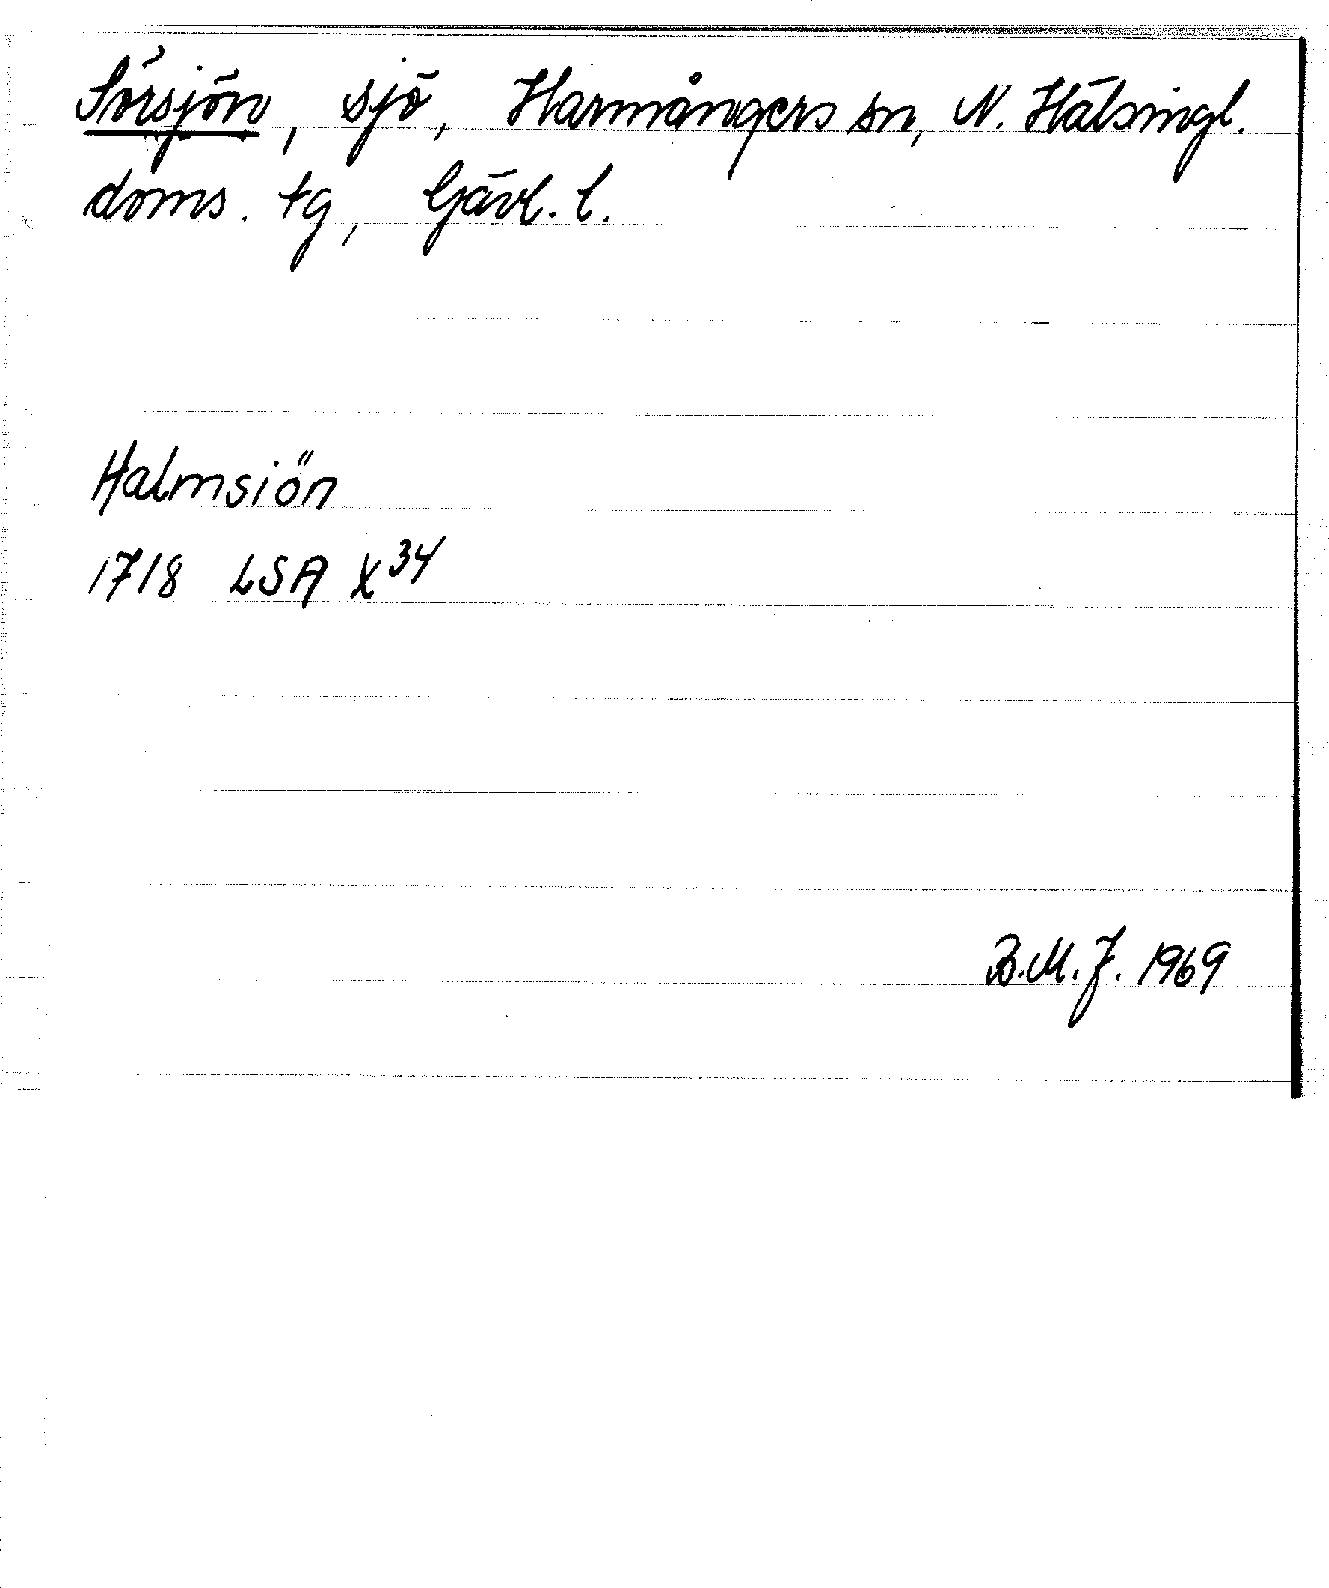 Sörsjön, sjö, Harmångers sn, N. Hälsingl.
doms. tg, Gävl. l.
Halmsiön
1718 LSA X34
B.M.J. 1969